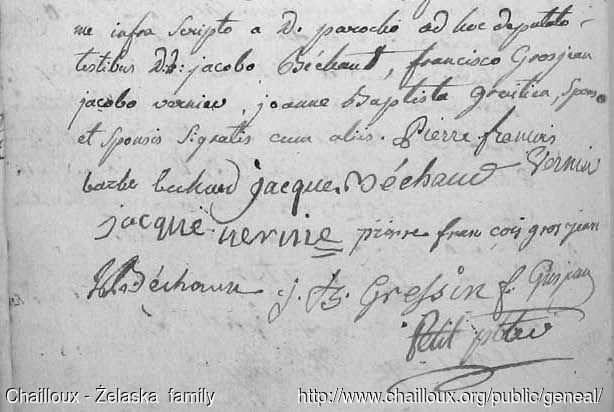 me infra scripto a D. parocho ad hoc deputato
testibus DD: jacobo Béchaud, francisco Grosjean
jacobo vernier, joanne Baptista
et sponsis signatis cum aliis. Pierre francois
barbe bechaud jacque Béchaud vernier
jacque vernie pierre francois grosjean
Béchaux j. B. Gressin f. Grosjean
Petit
Chailloux - Żelaska family http://www.chailloux.org/public/geneal/